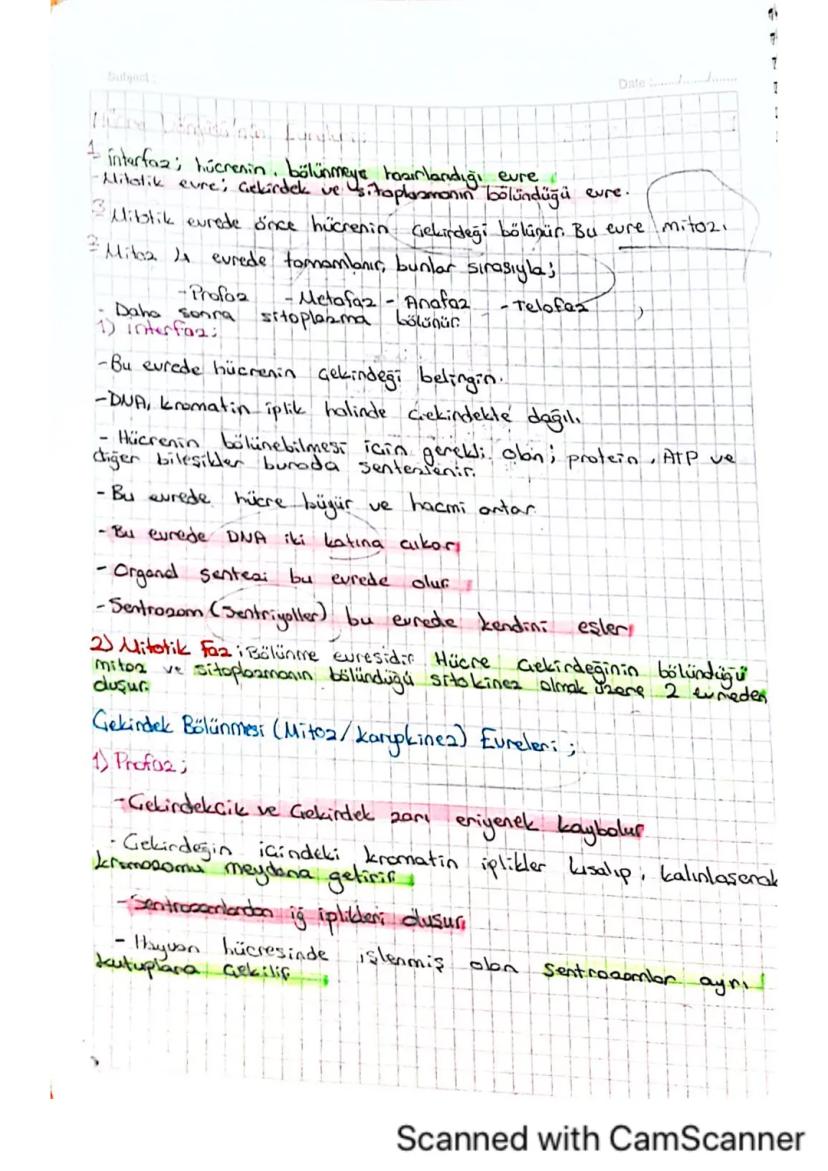 Subject :
Date :....../....../......
Hücre
1 interfaz; hücrenin, bölünmeye hazırlandığı evre
- Mitotik evre; Çekirdek ve sitoplazmanın bölündüğü evre.
3 Mitotik evrede önce hücrenin Çekirdeği bölünür. Bu evre mitoz.
2 Mitoz 4 evrede tamamlanır, bunlar sırasıyla;
-Profaz -Metafaz - Anafaz -Telofaz
- Daha sonra sitoplazma bölünür.
1) interfaz;
-Bu evrede hücrenin Çekirdeği belirgin.
-DNA, kromatin iplik halinde Çekirdekte dağılı.
- Hücrenin bölünebilmesi için gerekli olan; protein, ATP ve
diğer bileşikler burada sentezlenir.
- Bu evrede hücre büyür ve hacmi artar
- Bu evrede DNA iki katına çıkar
- Organel sentezi bu evrede olur
- Sentrozom (Sentriyoller) bu evrede kendini eşler
2) Mitotik Faz; Bölünme evresidir Hücre Çekirdeğinin bölündüğü
mitoz ve sitoplazmanın bölündüğü sitokinez olmak üzere 2 evreden
oluşur.
Çekirdek Bölünmesi (Mitoz/karyokinez) Evreleri;
1) Profaz;
-Çekirdekcik ve Çekirdek zarı eriyerek kaybolur
- Çekirdeğin içindeki kromatin iplikler kısalıp, kalınlaşarak
kromozomu meydana getirir
- Sentrozomlardan iğ iplikleri oluşur
- Hayvan hücresinde işlenmiş olan sentrozomlar aynı
kutuplara çekilir
Scanned with CamScanner